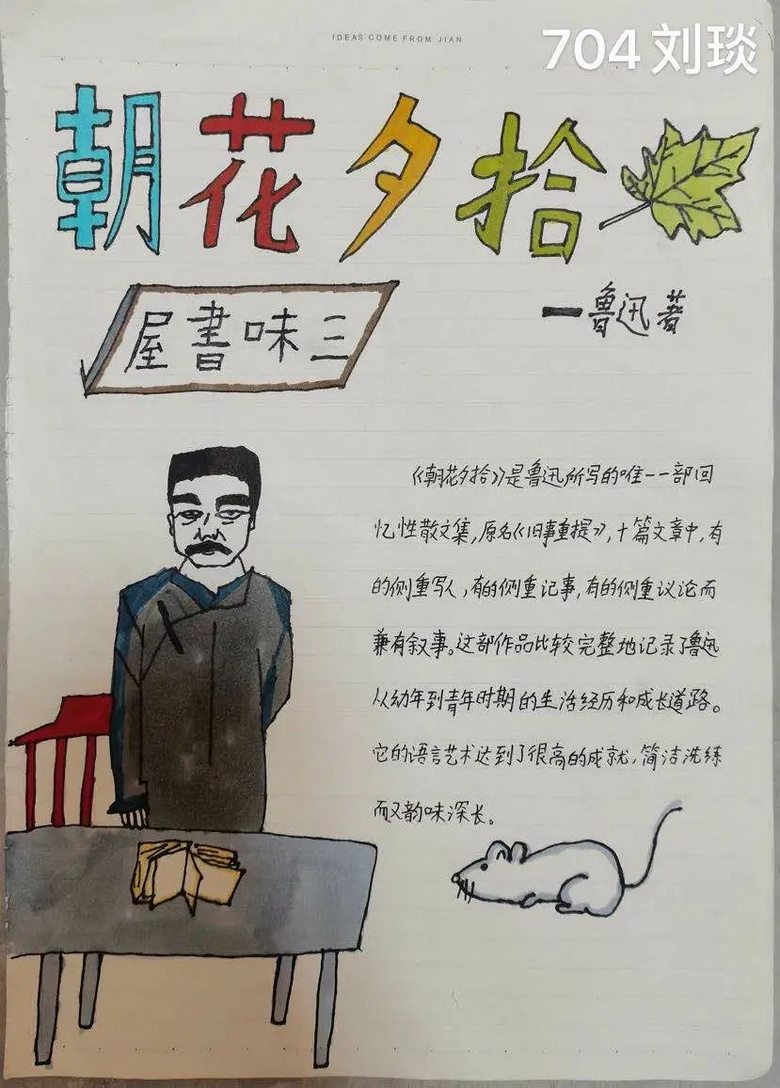 IDEAS COME FROM JIAN
704 刘琰
朝花夕拾
屋書味三
一鲁迅著
《朝花夕拾》是鲁迅所写的唯一一部回
忆性散文集,原名《旧事重提》,十篇文章中,有
的侧重写人,有的侧重记事,有的侧重议论而
兼有叙事。这部作品比较完整地记录了鲁迅
从幼年到青年时期的生活经历和成长道路。
它的语言艺术达到了很高的成就,简洁洗练
而又韵味深长。